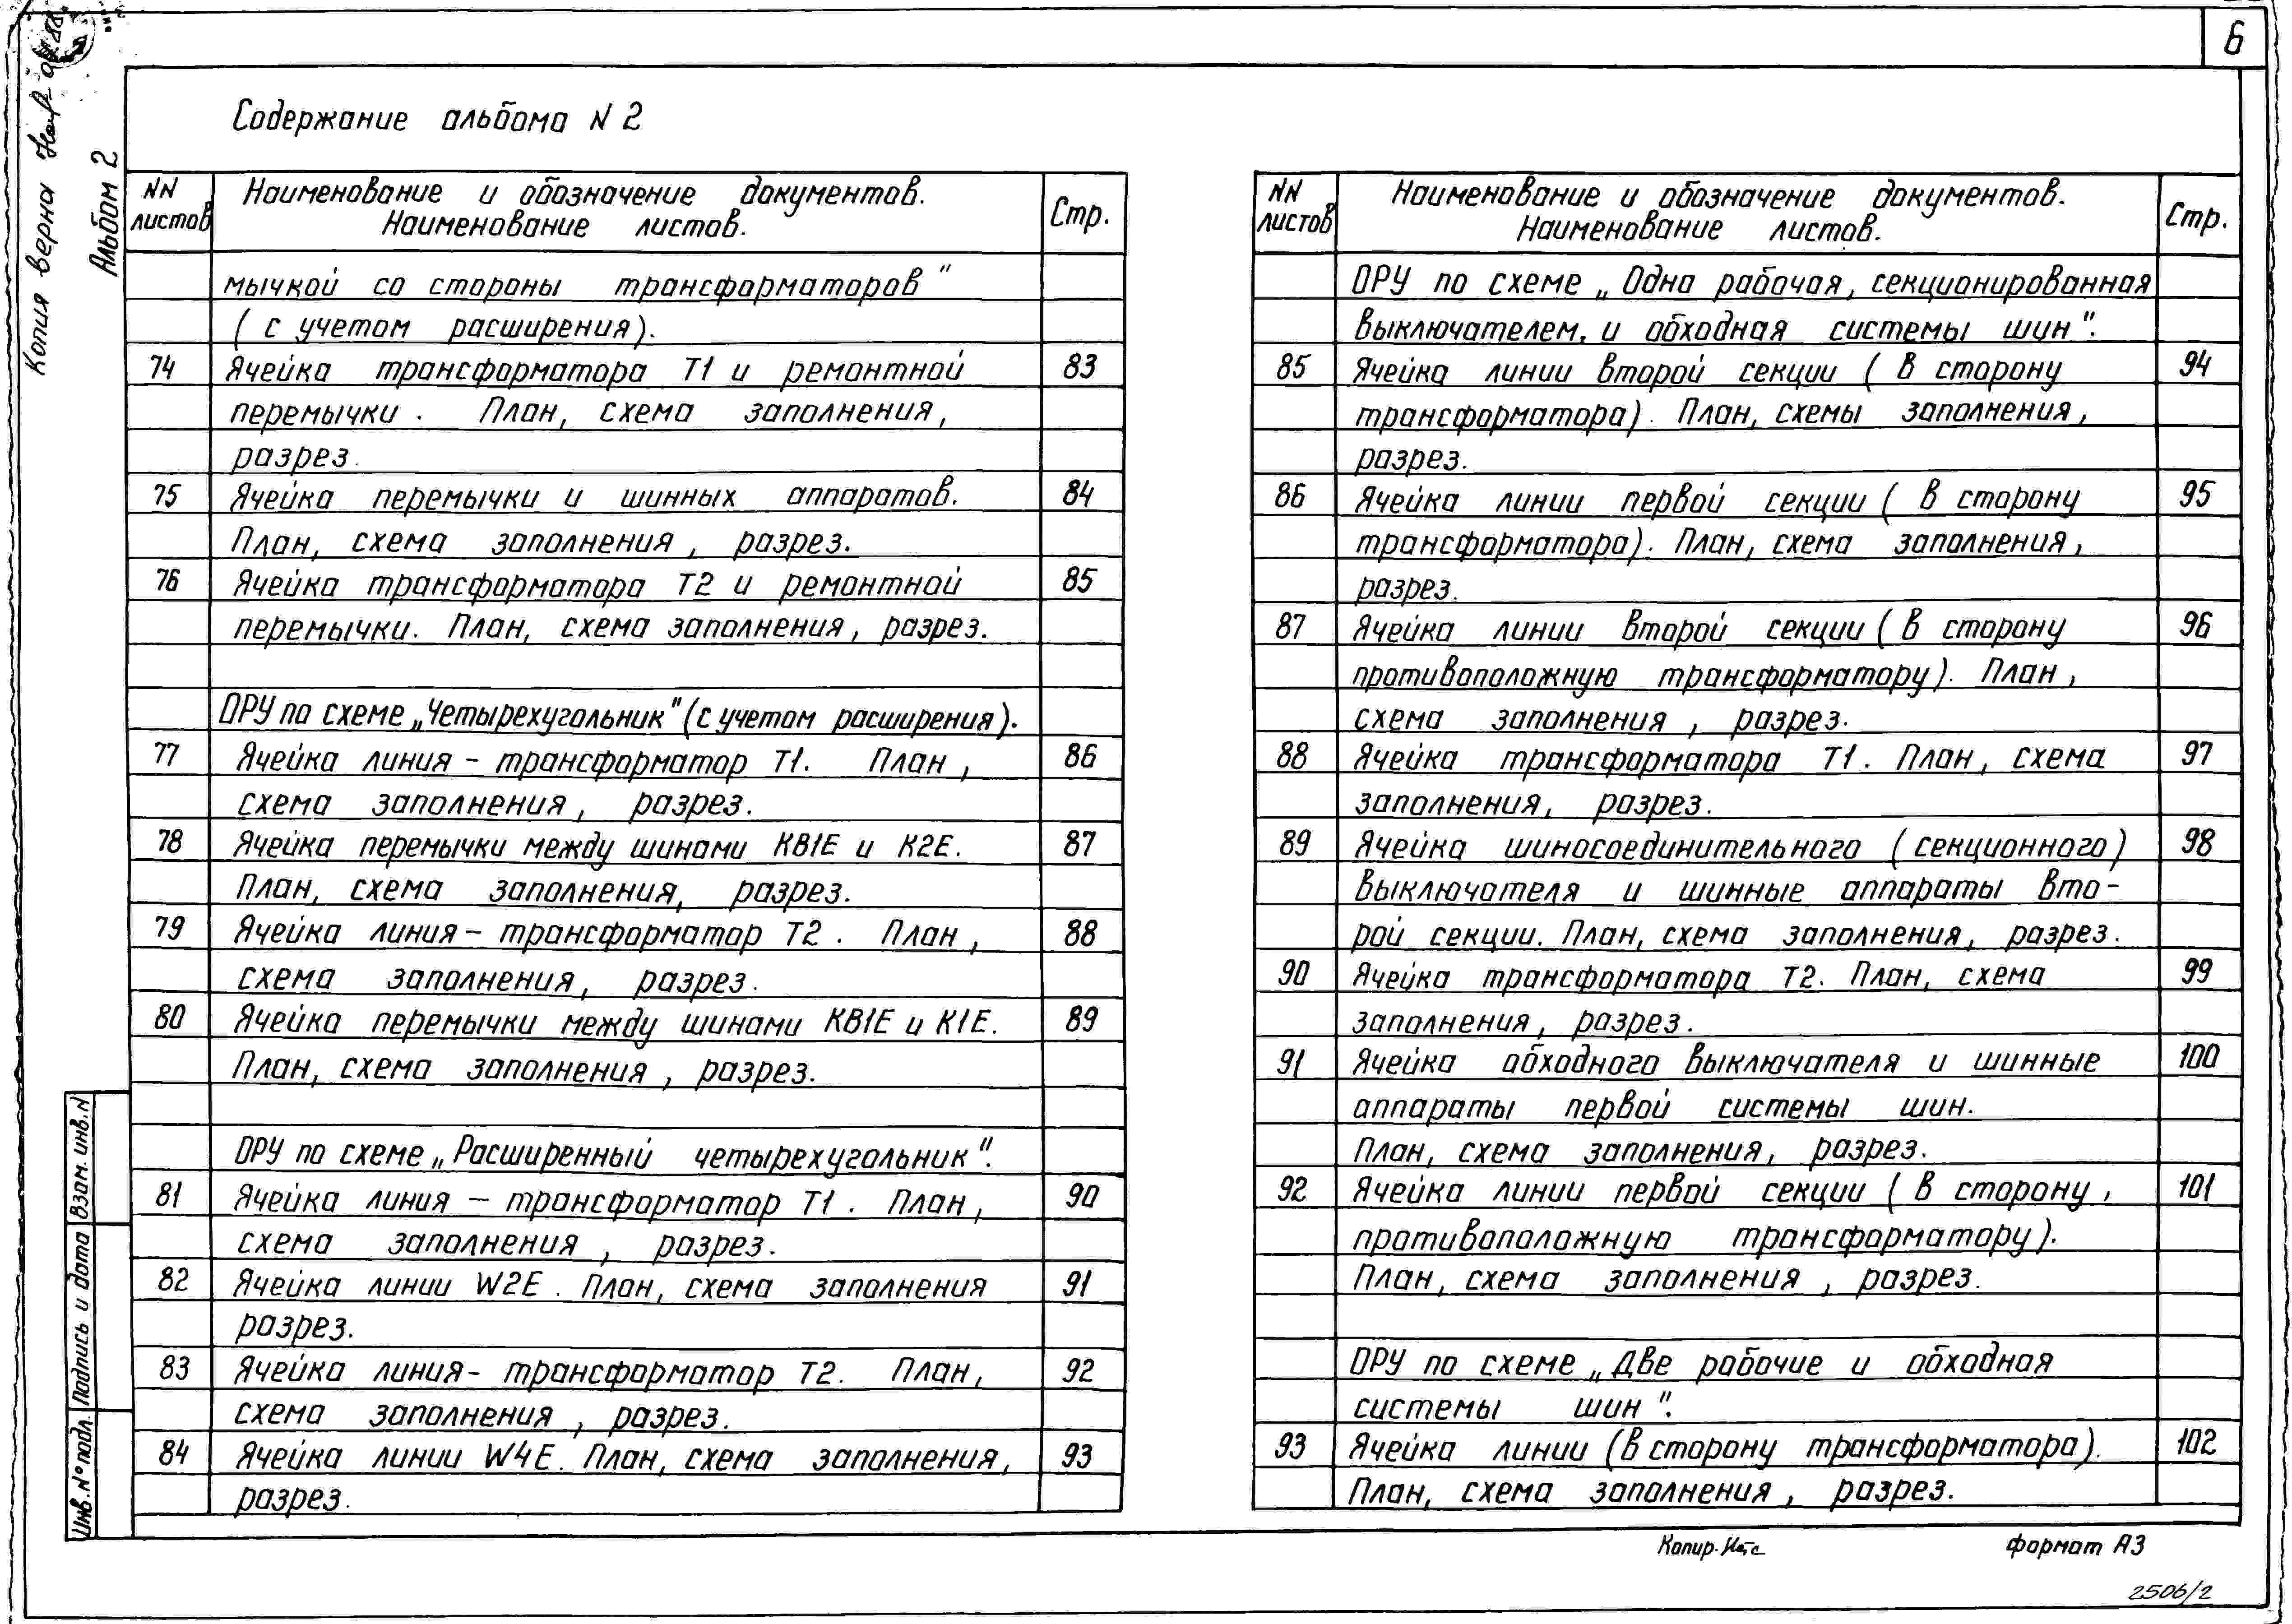 6
Копия верна
Альбом 2
Содержание альбома N 2
NN листов
Наименование и обозначение документов.
Наименование листов.
Стр.
мычкой со стороны трансформаторов"
(с учетом расширения).
74 Ячейка трансформатора Т1 и ремонтной 83
перемычки. План, схема заполнения,
разрез.
75 Ячейка перемычки и шинных аппаратов. 84
План, схема заполнения, разрез.
76 Ячейка трансформатора Т2 и ремонтной 85
перемычки. План, схема заполнения, разрез.
ОРУ по схеме „Четырехугольник" (с учетом расширения).
77 Ячейка линия - трансформатор Т1. План, 86
схема заполнения, разрез.
78 Ячейка перемычки между шинами КВ1Е и К2Е. 87
План, схема заполнения, разрез.
79 Ячейка линия - трансформатор Т2. План, 88
схема заполнения, разрез.
80 Ячейка перемычки между шинами КВ1Е и К1Е. 89
План, схема заполнения, разрез.
ОРУ по схеме „Расширенный четырехугольник".
81 Ячейка линия - трансформатор Т1. План, 90
схема заполнения, разрез.
82 Ячейка линии W2E. План, схема заполнения 91
разрез.
83 Ячейка линия - трансформатор Т2. План, 92
схема заполнения, разрез.
84 Ячейка линии W4E. План, схема заполнения, 93
разрез.
NN листов
Наименование и обозначение документов.
Наименование листов.
Стр.
ОРУ по схеме „Одна рабочая, секционированная
выключателем, и обходная системы шин".
85 Ячейка линии второй секции (в сторону 94
трансформатора). План, схемы заполнения,
разрез.
86 Ячейка линии первой секции (в сторону 95
трансформатора). План, схема заполнения,
разрез.
87 Ячейка линии второй секции (в сторону 96
противоположную трансформатору). План,
схема заполнения, разрез.
88 Ячейка трансформатора Т1. План, схема 97
заполнения, разрез.
89 Ячейка шиносоединительного (секционного) 98
выключателя и шинные аппараты вто-
рой секции. План, схема заполнения, разрез.
90 Ячейка трансформатора Т2. План, схема 99
заполнения, разрез.
91 Ячейка обходного выключателя и шинные 100
аппараты первой системы шин.
План, схема заполнения, разрез.
92 Ячейка линии первой секции (в сторону, 101
противоположную трансформатору).
План, схема заполнения, разрез.
ОРУ по схеме „Две рабочие и обходная
системы шин".
93 Ячейка линии (в сторону трансформатора). 102
План, схема заполнения, разрез.
Взам. инв. N
Подпись и дата
Инв. № подл.
Копир.
формат А3
2506/2